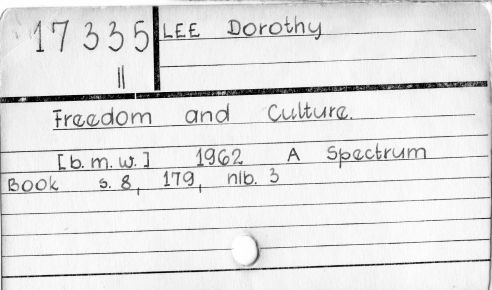 17 335
II
LEE Dorothy
Freedom and Culture.
[b. m. w.] 1962 A Spectrum
Book s. 8, 179, nlb. 3